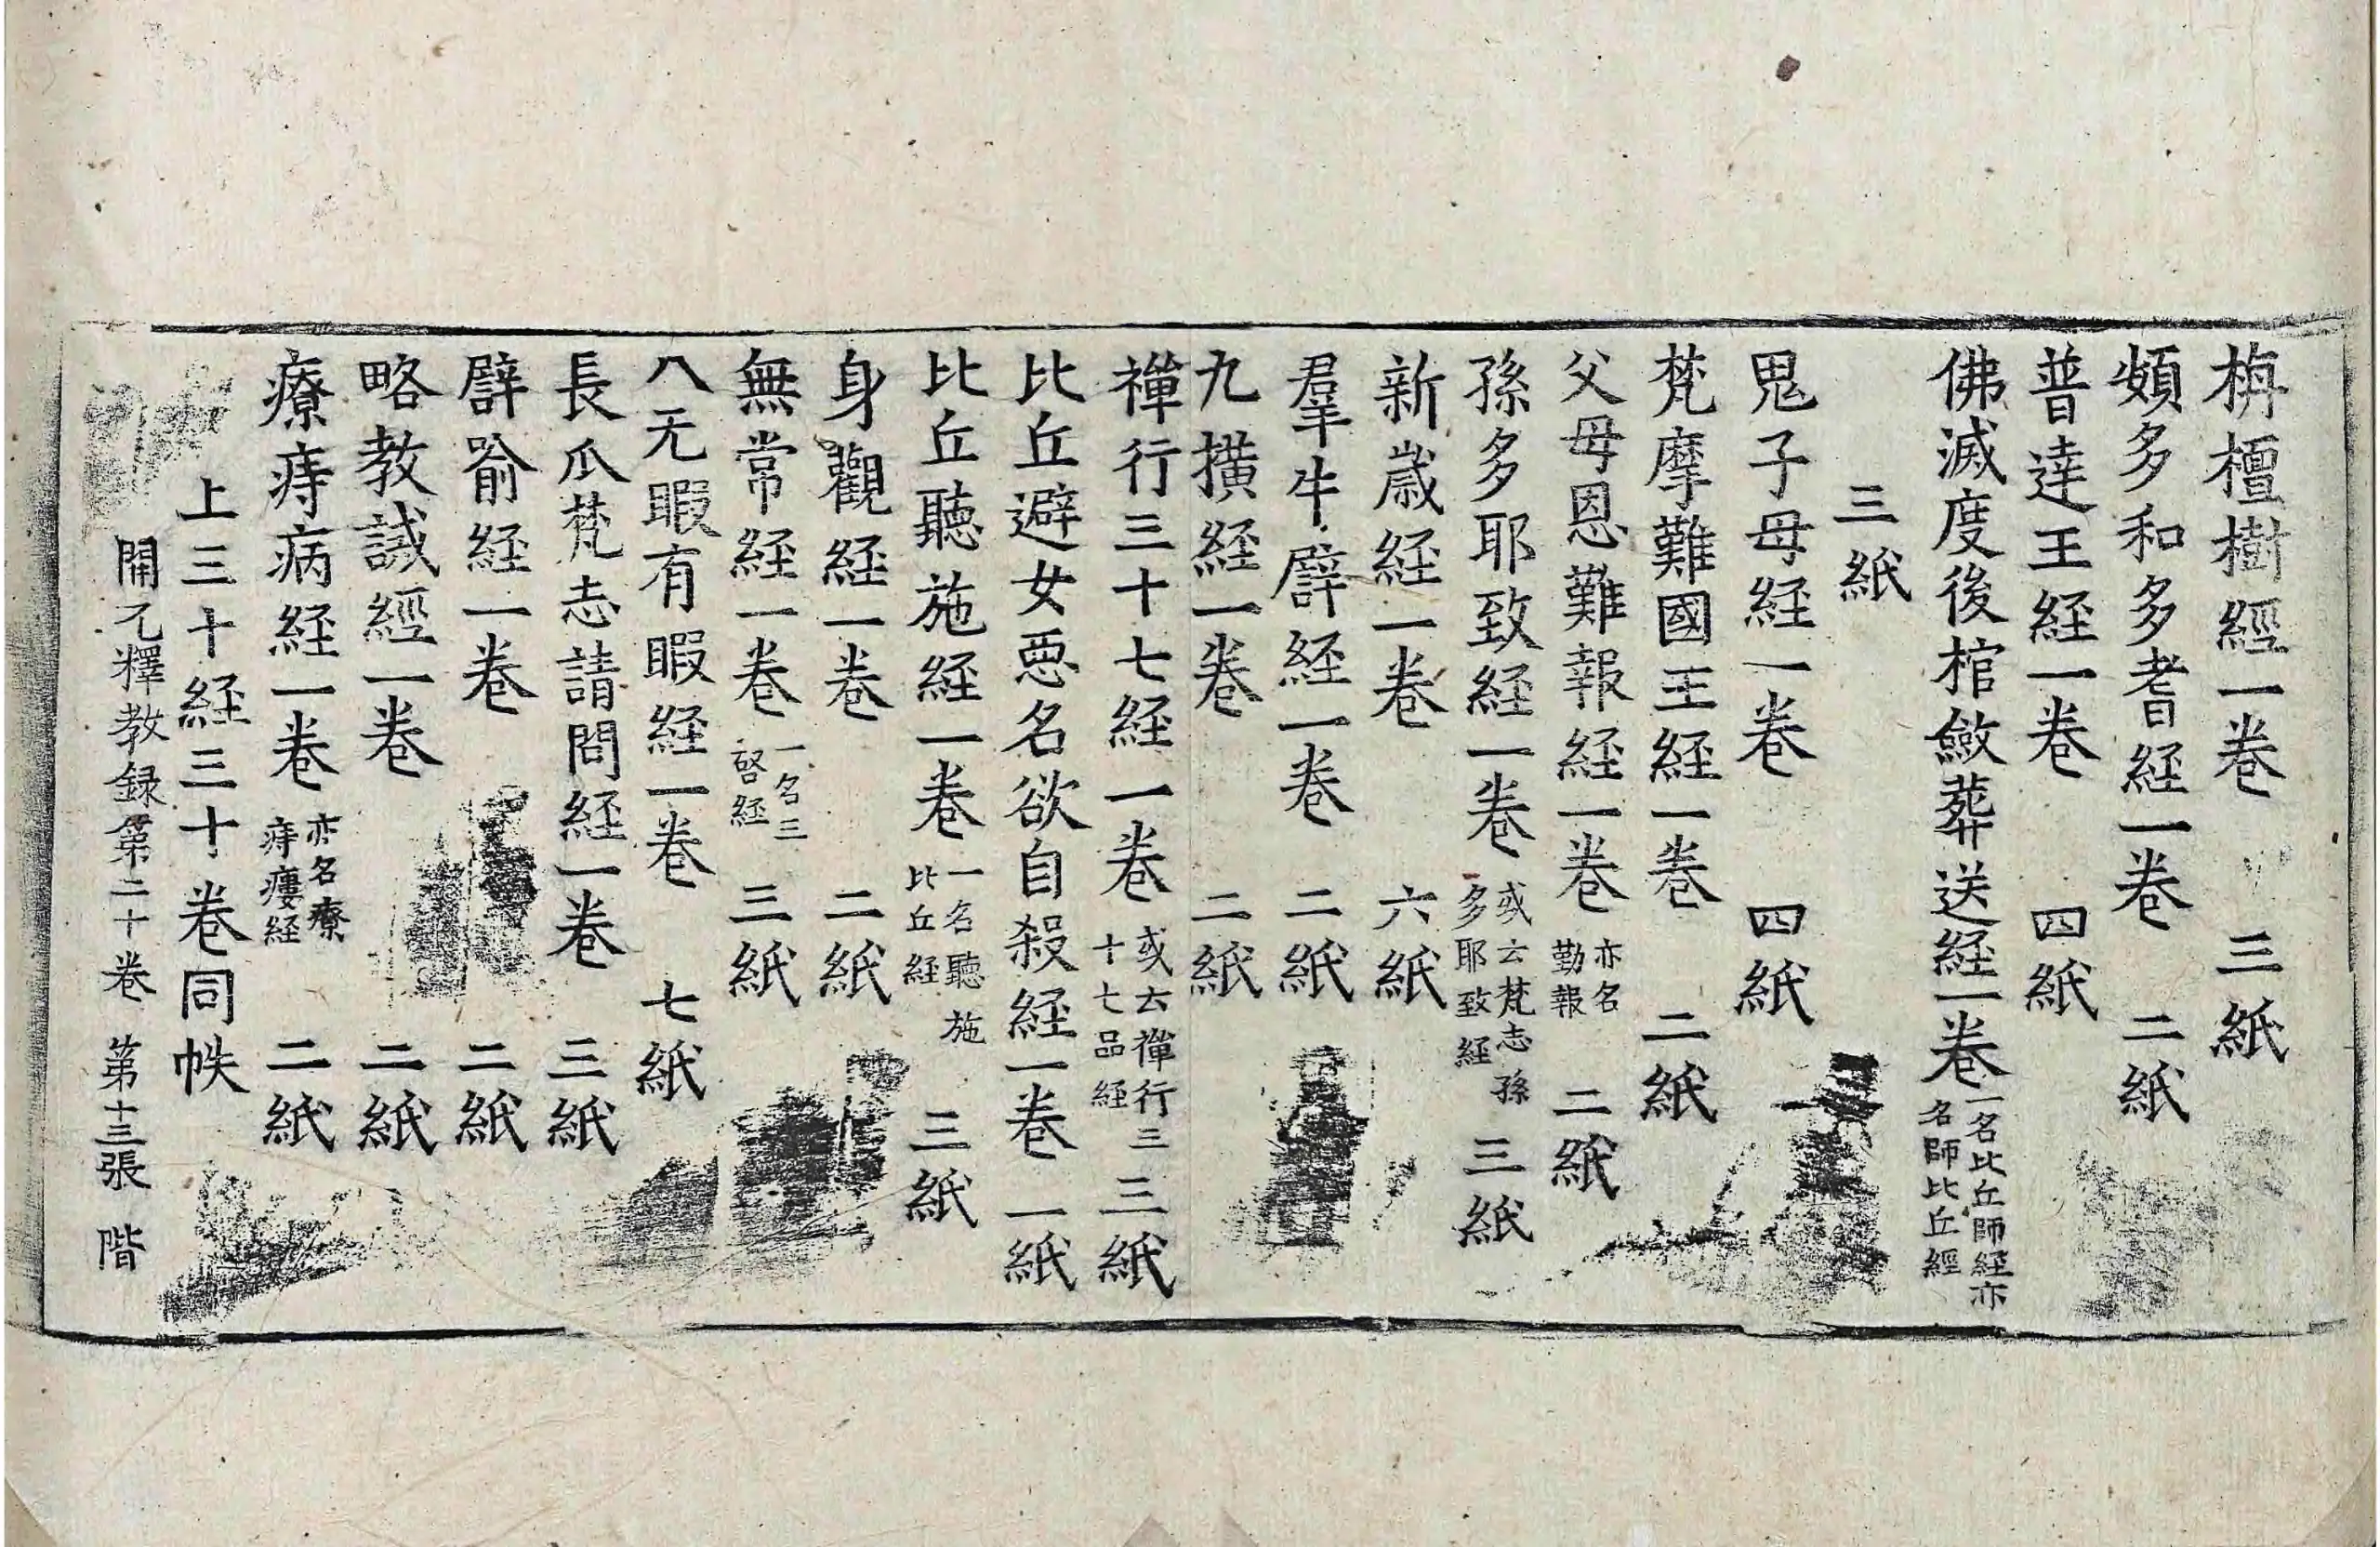 栴檀樹經一卷 三紙
頞多和多耆経一卷 二紙
普達王経一卷 四紙
佛滅度後棺斂葬送経一卷 一名比丘師経亦名師比丘經
三紙
鬼子母経一卷 四紙
梵摩難國王経一卷 二紙
父母恩難報経一卷 亦名勤報 二紙
孫多耶致経一卷 或云梵志孫多耶致経 三紙
新歲経一卷 六紙
羣牛譬経一卷 二紙
九撗経一卷 二紙
禪行三十七経一卷 或云禪行三十七品経 三紙
比丘避女惡名欲自殺経一卷 一紙
比丘聽施経一卷 一名聽施比丘経 三紙
身觀経一卷 二紙
無常経一卷 一名三啓経 三紙
八无暇有暇経一卷 七紙
長爪梵志請問経一卷 三紙
譬喻経一卷 二紙
略教誡經一卷 二紙
療痔病経一卷 亦名療痔瘻経 二紙
上三十経三十卷同帙
開元釋教録第二十卷 第十三張 階